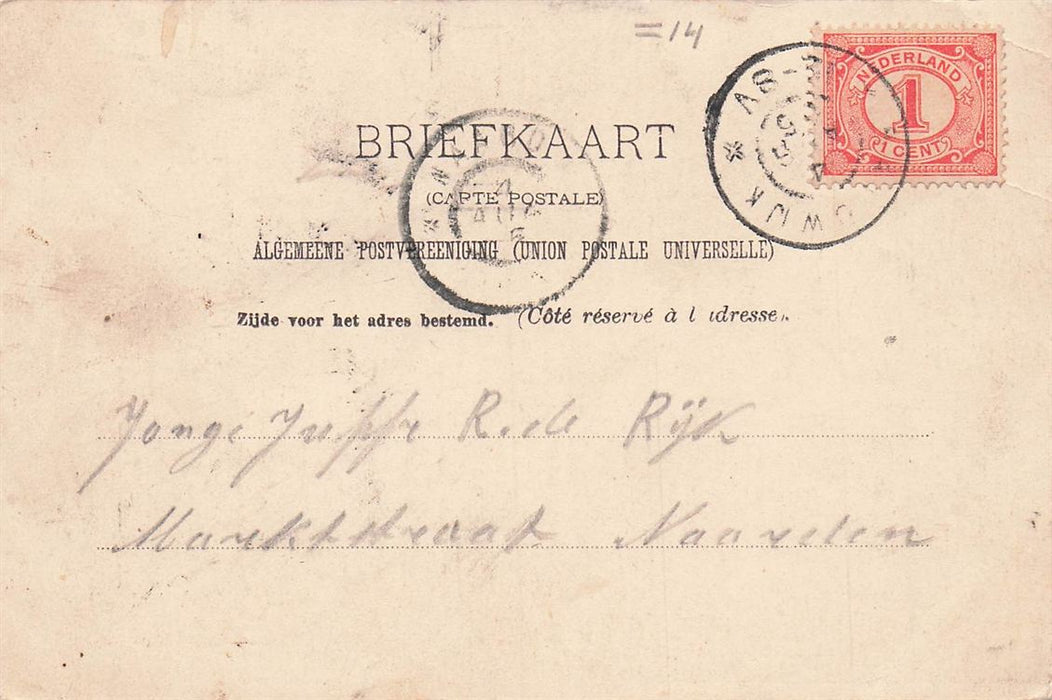 =14
NEDERLAND
1
1 CENT
BRIEFKAART
(CARTE POSTALE)
AUG
ALGEMEENE POSTVEREENIGING (UNION POSTALE UNIVERSELLE)
Zijde voor het adres bestemd. (Côté réservé à l'adresse.)
Jonge Juffr R. de Rijk
Marktstraat Naarden